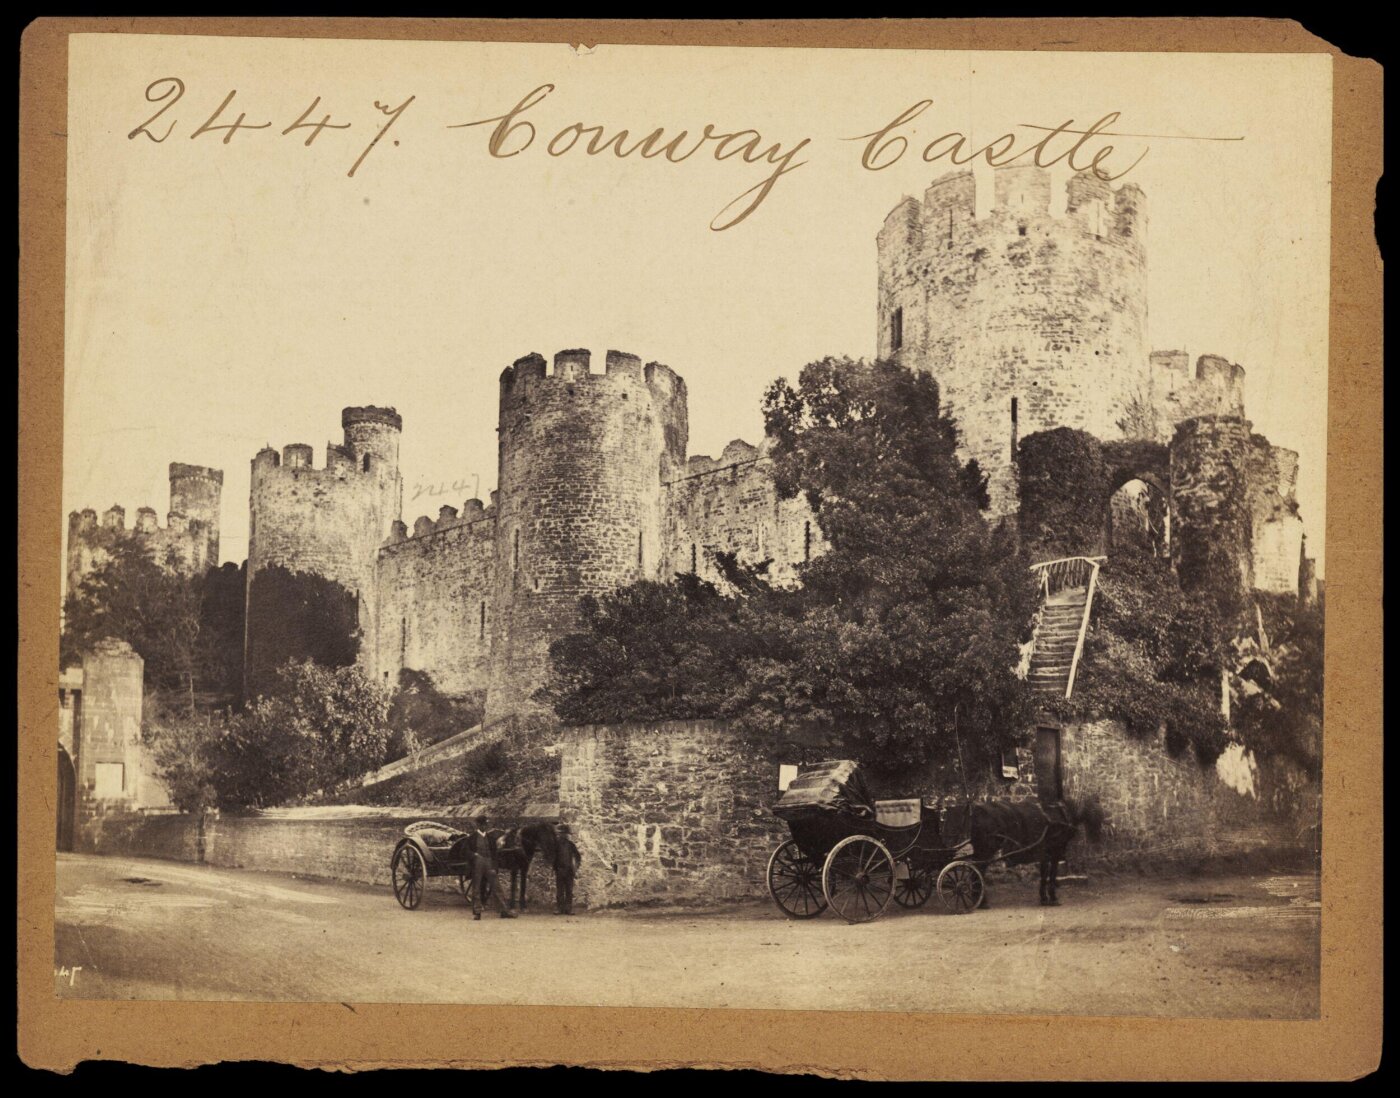 2447. Conway Castle
2447